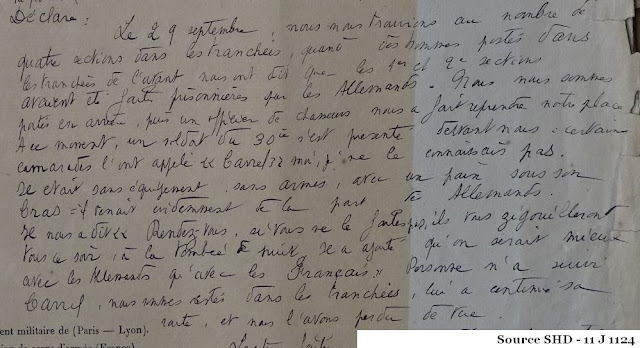 Déclare :
Le 29 septembre, nous nous trouvions au nombre de
quatre sections dans les tranchées, quand des hommes postés dans
les tranchées de l'avant nous ont dit que les 1ères et 2e sections
avaient été faites prisonnières par les Allemands. Nous nous sommes
portés en arrière, puis un officier de chasseurs nous a fait reprendre notre place
Au moment, un soldat du 30ème s'est présenté devant nous : certains
camarades l'ont appelé « Carrel » moi, je ne le connaissais pas.
Il était sans équipement, sans armes, avec un pain sous son
bras - il venait évidemment de la part des Allemands.
Il nous a dit « Rendez-vous, si vous ne le faites pas, ils vous zigouilleront
tous ce soir, à la tombée de nuit, Il a ajouté qu'on serait mieux
avec les Allemands qu'avec les Français. » Personne n'a suivi
Carrel, nous sommes restés dans les tranchées, lui a continué sa
route, et nous l'avons perdu de vue.
ent militaire de (Paris — Lyon).
Source SHD - 11 J 1124